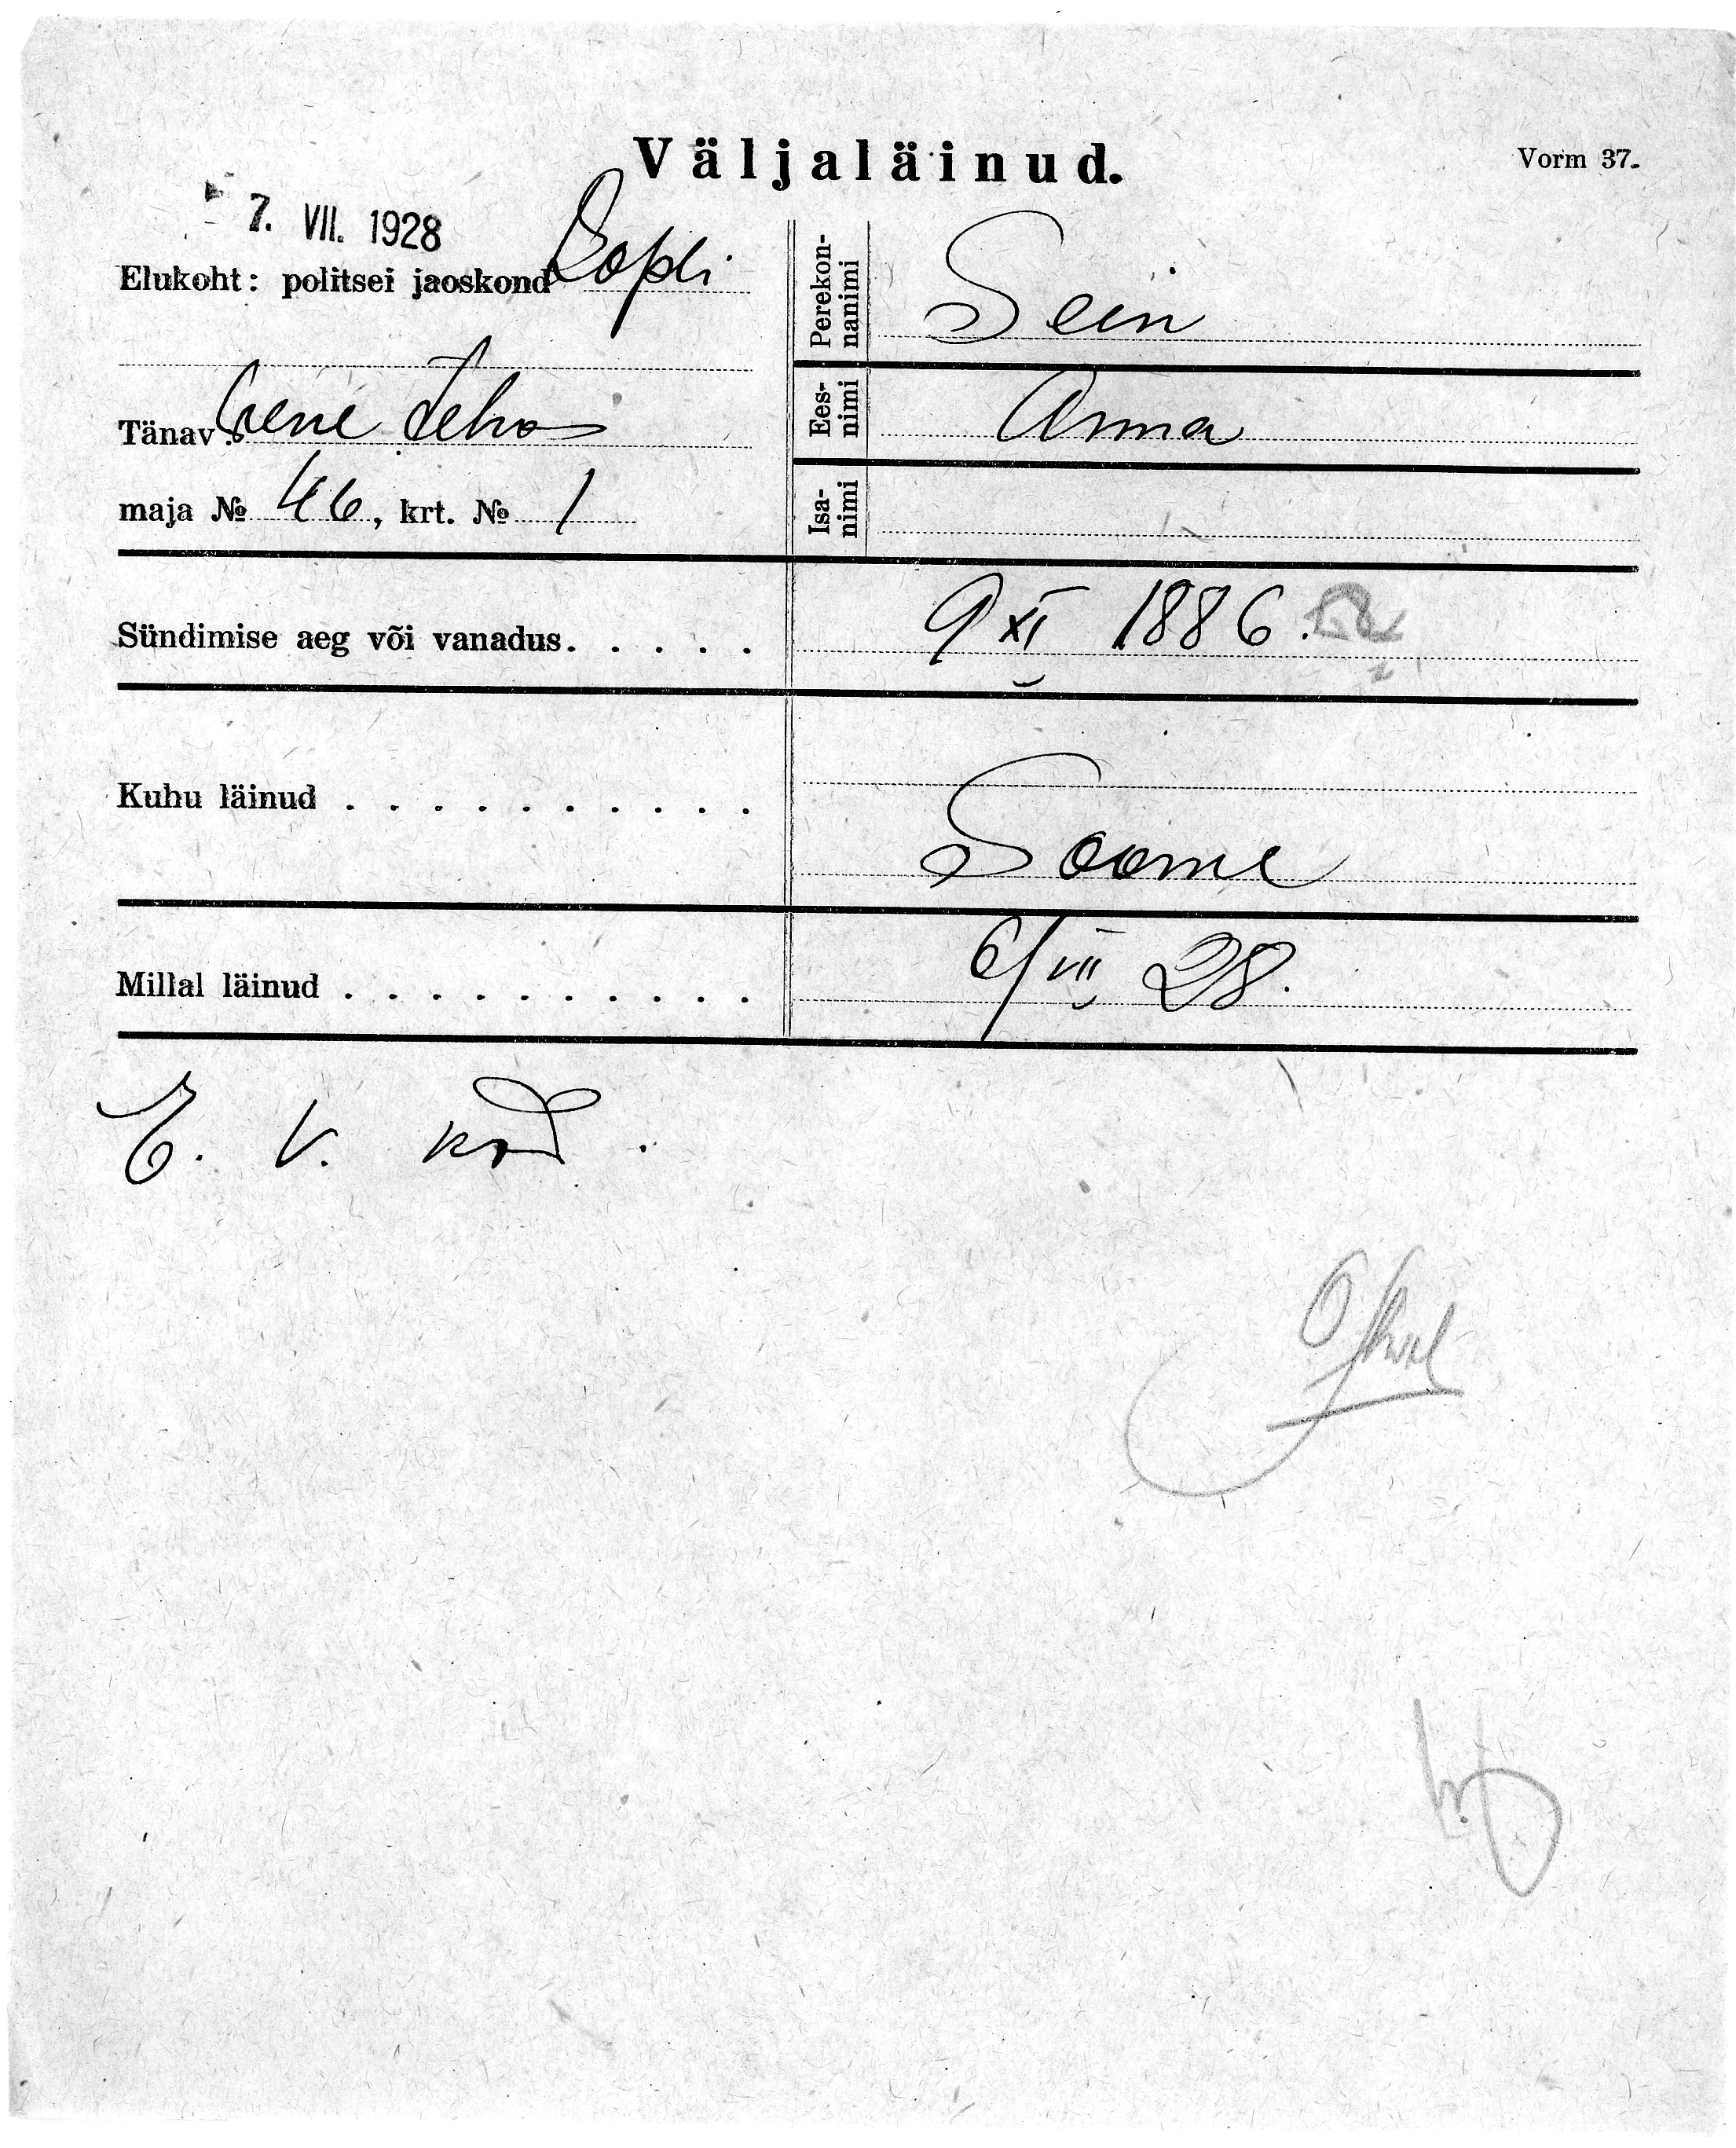 Väljaläinud.
Vorm 37.
7. VII. 1928
Elukoht: politsei jaoskond Kopli
Tänav
maja № 46, krt. № 1
Perekon-
nanimi
Sein
Ees-
nimi
Anna
Isa-
nimi
Sündimise aeg või vanadus. . . . . 9 XI 1886.
Kuhu läinud . . . . . . . . . . Soome
Millal läinud . . . . . . . . . . 6/VII 28.
E. V. kod.